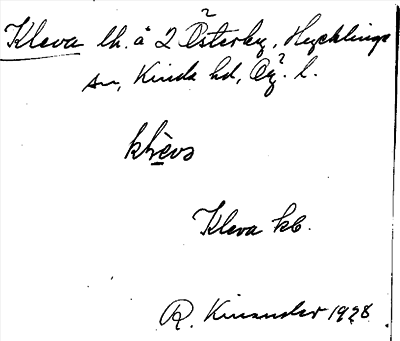 Kleva lh. å 2 Österby, Hycklinge
sn, Kinda hd, Ög. l.
klèva
Kleva kb.
R. Kinander 1928